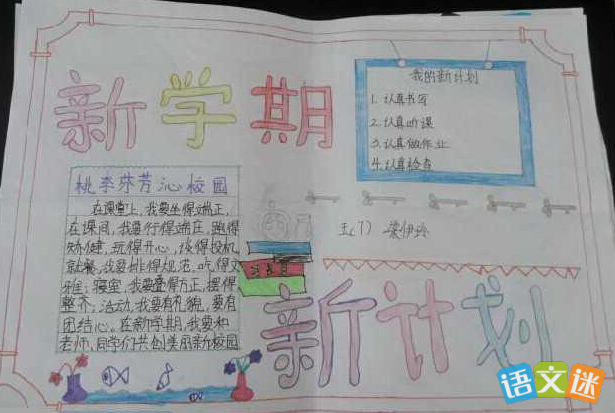 新学期
我的新计划
1. 认真书写
2. 认真听课
3. 认真做作业
4. 认真检查
桃李芬芳沁校园
在课堂上,我要坐得端正,
在课间,我要行得端庄,跑得
矫健,玩得开心,谈得投机
就餐,我要排得规范,吃得文
雅;寝室,我要叠得方正,摆得
整齐;活动,我要有礼貌,要有
团结心。在新学期,我要和
老师、同学们共创美丽新校园
五(7) 梁伊玲
新计划
语文迷